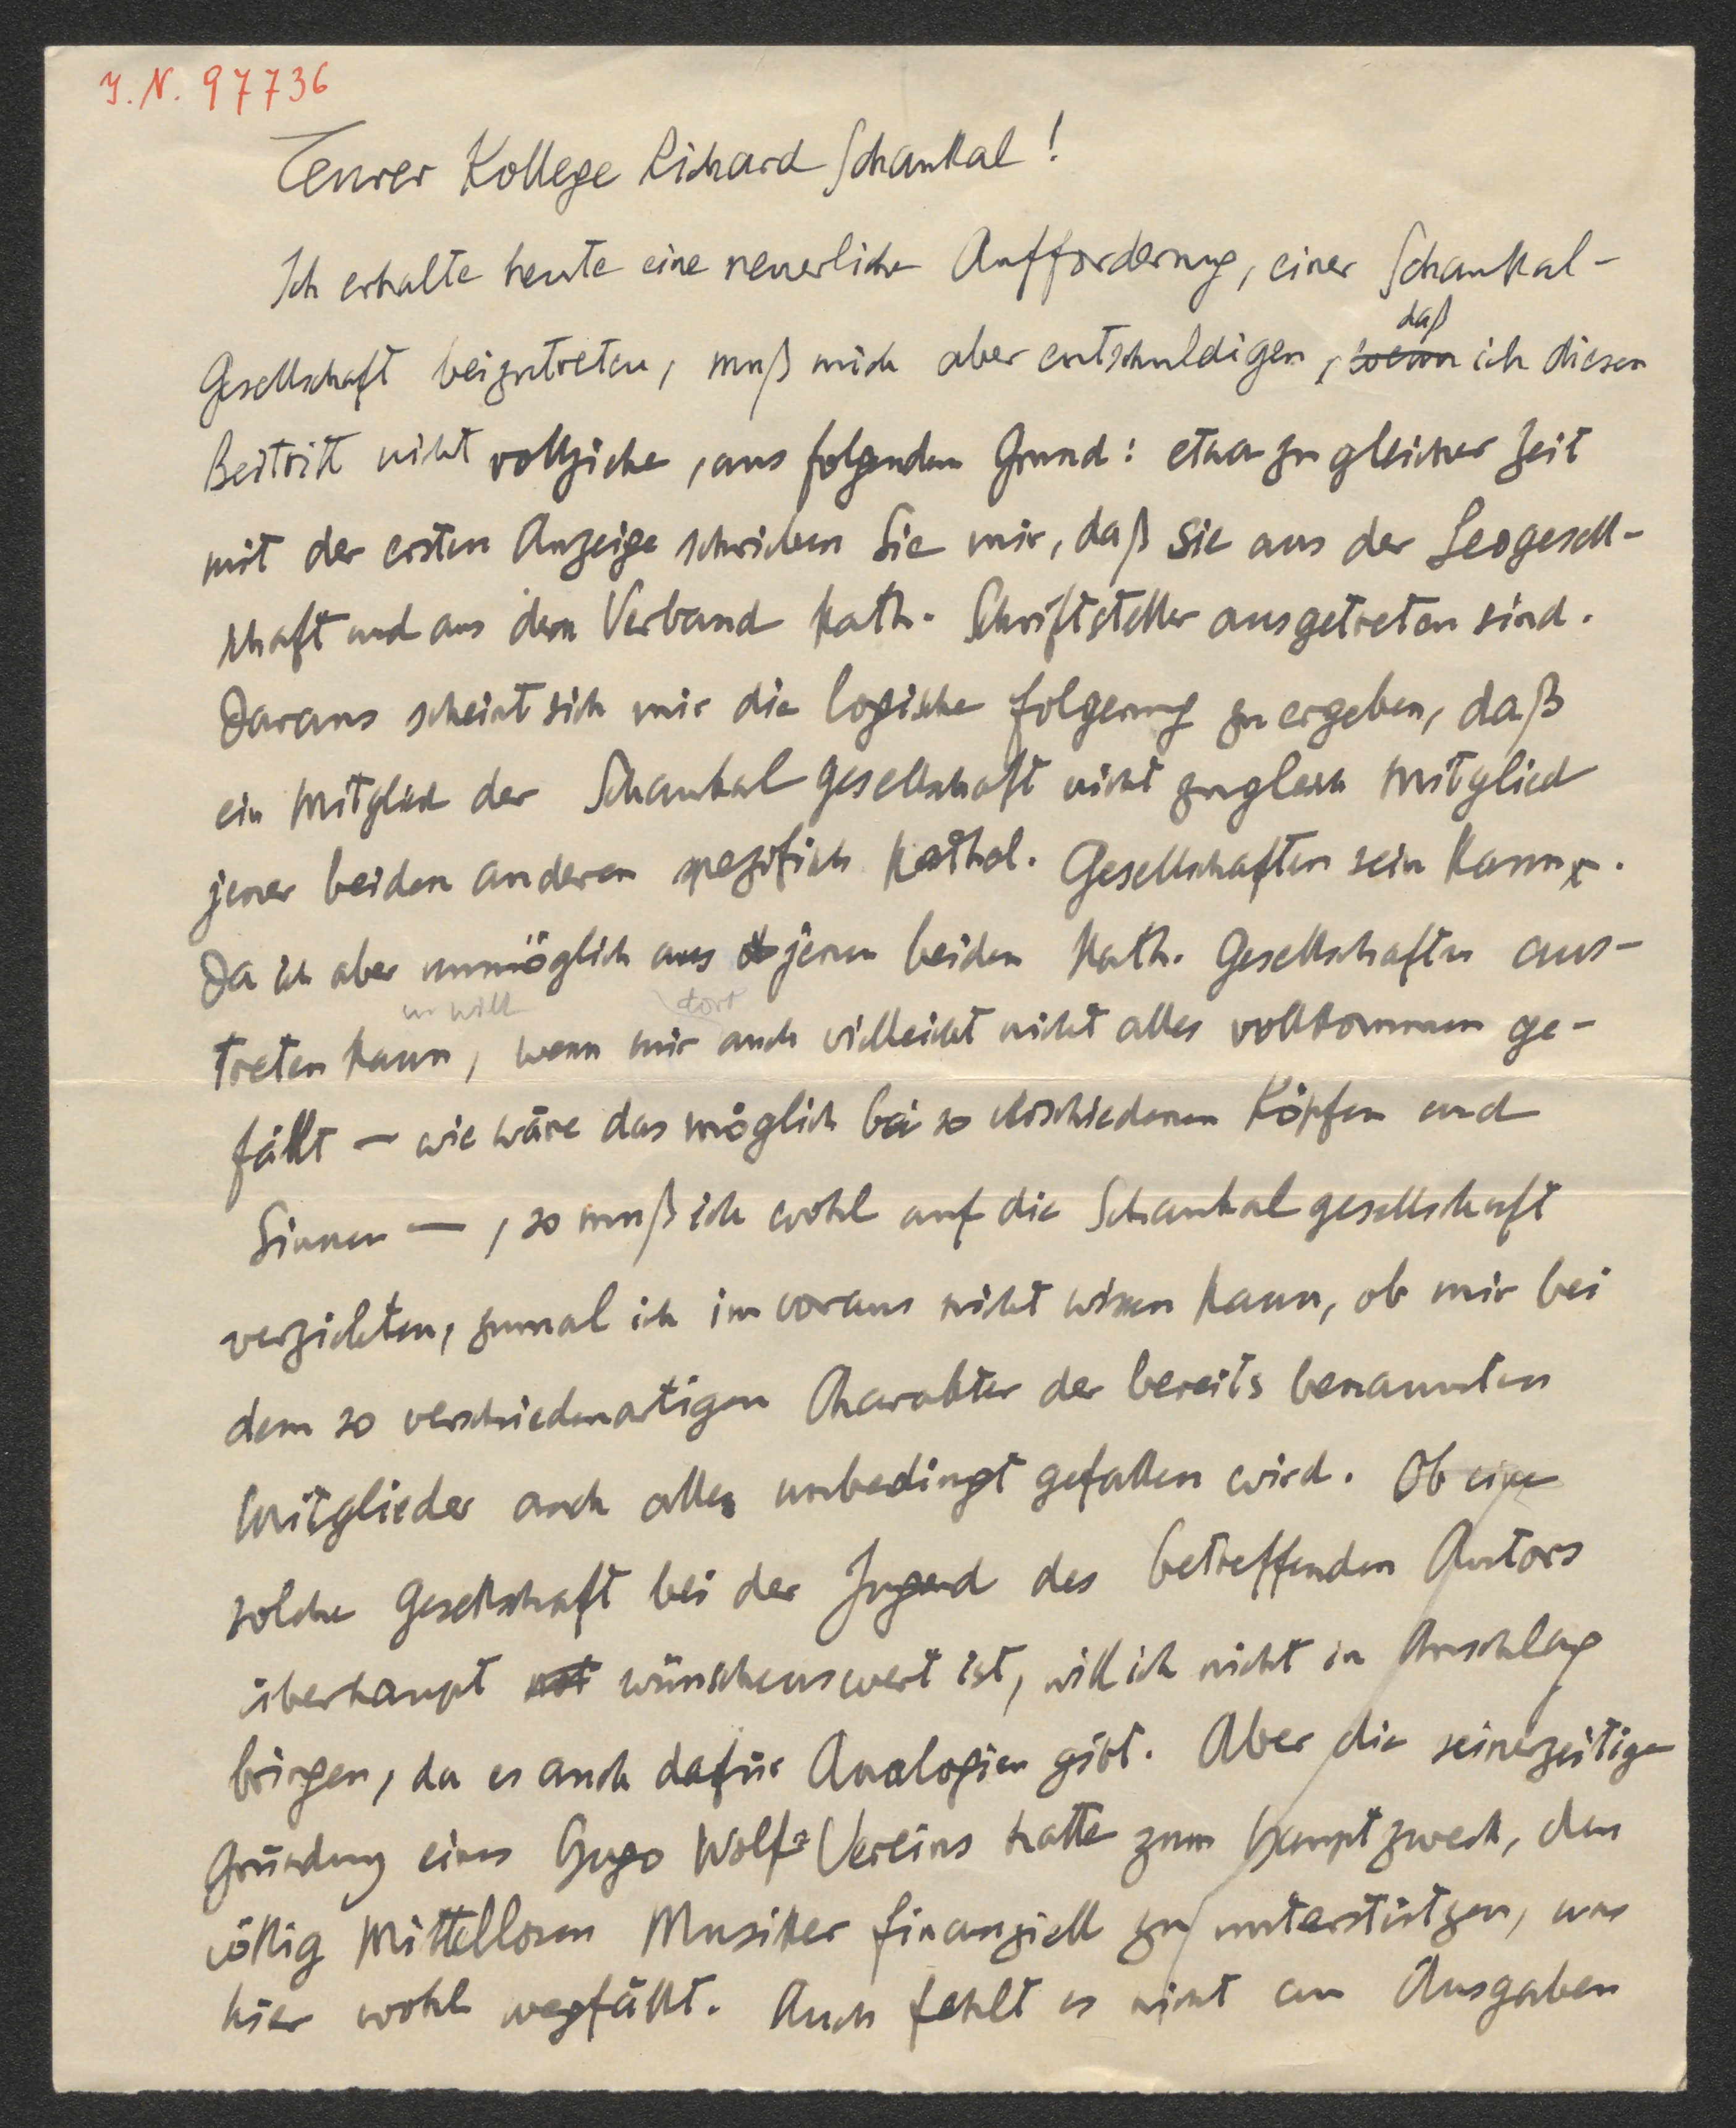 J. N. 97736
Teurer Kollege Richard Schaukal!
Ich erhalte heute eine neuerliche Aufforderung, einer Schaukal-
daß
Gesellschaft beizutreten, muß mich aber entschuldigen, wenn ich diesen
Beitritt nicht vollziehe, aus folgendem Grund: etwa zu gleicher Zeit
mit der ersten Anzeige schrieben Sie mir, daß Sie aus der Leogesell-
schaft und aus dem Verband kath. Schriftsteller ausgetreten sind.
Daraus scheint sich mir die logische Folgerung zu ergeben, daß
ein Mitglied der Schaukalgesellschaft nicht zugleich Mitglied
jener beiden anderen spezifisch kathol. Gesellschaften sein kann.
Da ich aber unmöglich aus jenen beiden kath. Gesellschaften aus-
u. will dort
treten kann, wenn mir auch vielleicht nicht alles vollkommen ge-
fällt — wie wäre das möglich bei so verschiedenen Köpfen und
Sinnen —, so muß ich wohl auf die Schaukalgesellschaft
verzichten, zumal ich im voraus nicht wissen kann, ob mir bei
dem so verschiedenartigen Charakter der bereits benannten
Mitglieder auch alles unbedingt gefallen wird. Ob eine
solche Gesellschaft bei der Jugend des betreffenden Autors
überhaupt wünschenswert ist, will ich nicht in Anschlag
bringen, da es auch dafür Analogien gibt. Aber die seinerzeitige
Gründung eines Hugo Wolf-Vereins hatte zum Hauptzweck, den
völlig mittellosen Musiker finanziell zu unterstützen, was
hier wohl wegfällt. Auch fehlt es nicht an Ausgaben